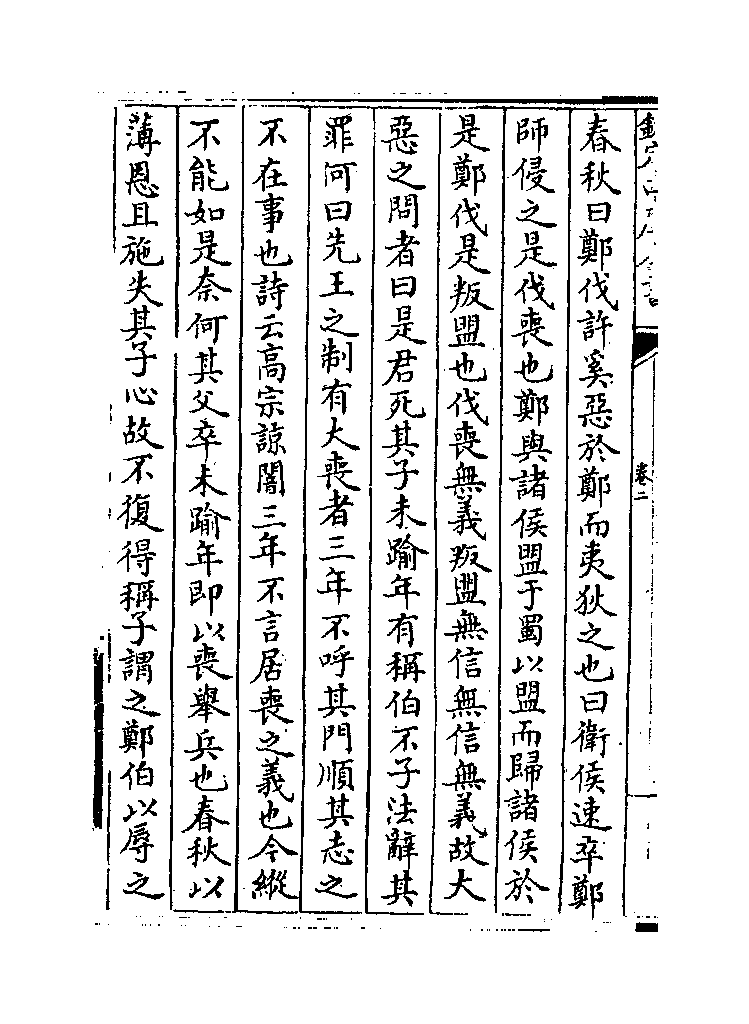 卷二
春秋曰鄭伐許奚惡於鄭而夷狄之也曰衛侯速卒鄭
師侵之是伐喪也鄭與諸侯盟于蜀以盟而歸諸侯於
是鄭伐是叛盟也伐喪無義叛盟無信無信無義故大
惡之問者曰是君死其子未踰年有稱伯不子法辭其
罪何曰先王之制有大喪者三年不呼其門順其志之
不在事也詩云高宗諒闇三年不言居喪之義也今縱
不能如是奈何其父卒未踰年即以喪舉兵也春秋以
薄恩且施失其子心故不復得稱子謂之鄭伯以辱之